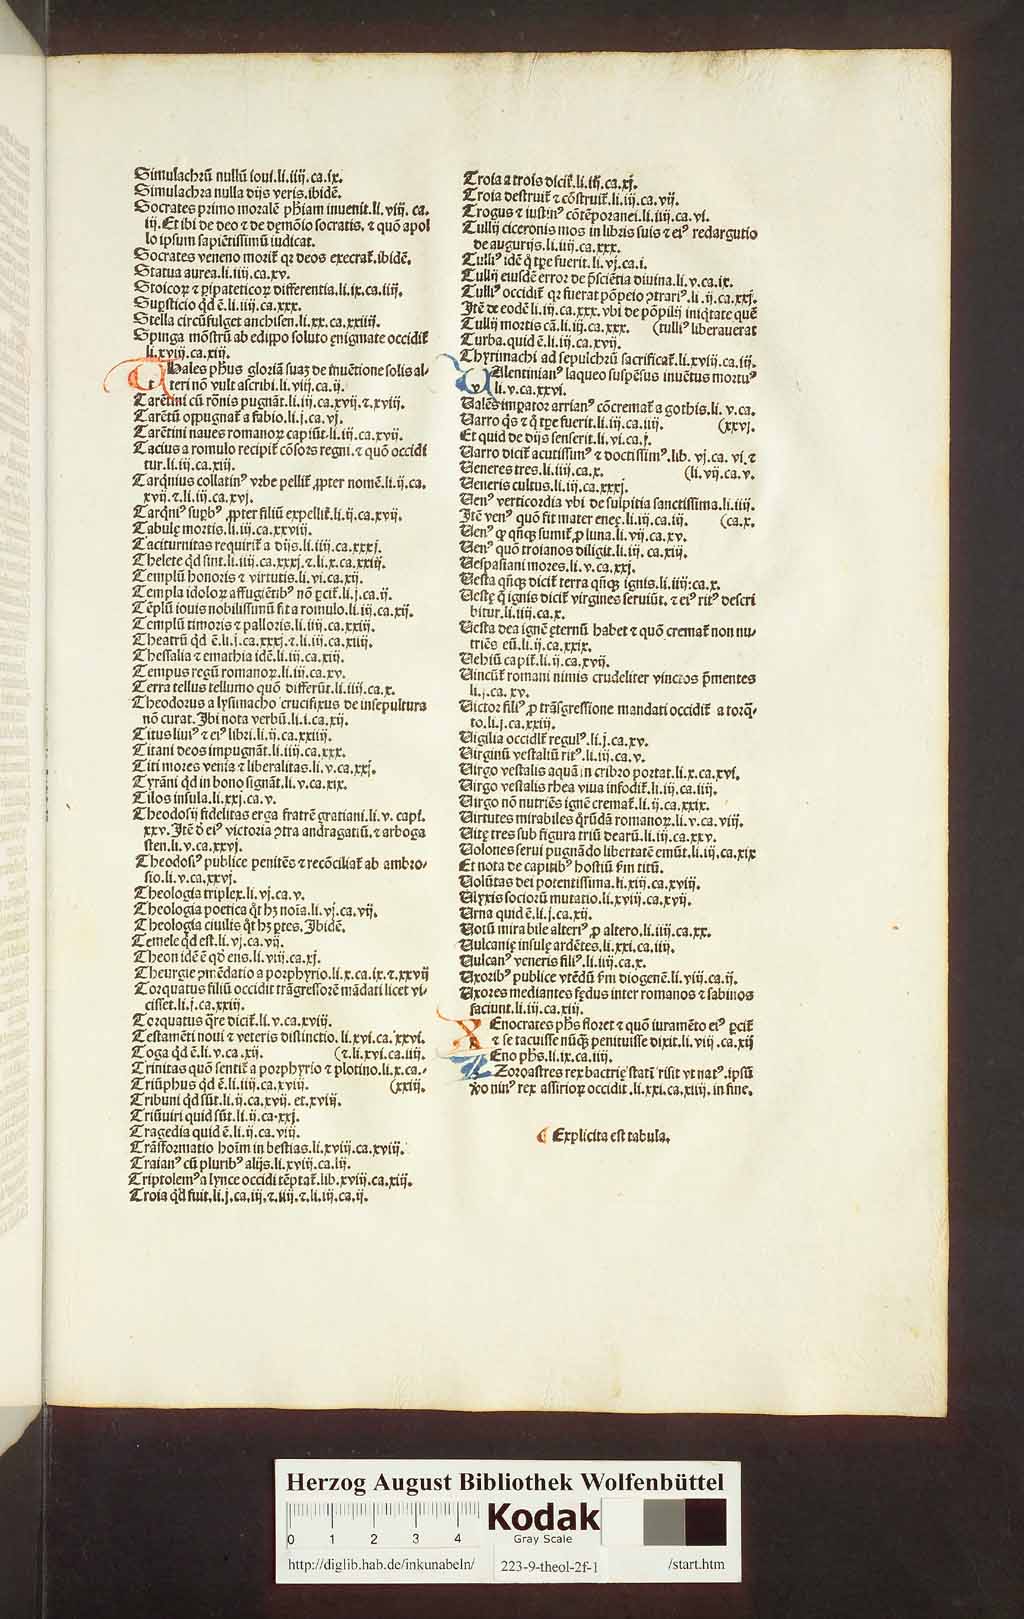 Simulachrū nullū ioui.li.iiij.ca.ix.
Simulachra nulla dijs veris.ibidē.
Socrates primo moralē phiam inuenit.li.viij. ca.
iij.Et ibi de deo ⁊ de dęmōio socratis. ⁊ quō apol
lo ipsum sapiētissimū iudicat.
Socrates veneno moriť qꝛ deos execrať.ibidē.
Statua aurea.li.iij.ca.xv.
Stoicoꝝ ⁊ pipateticoꝝ differentia.li.ix.ca.iiij.
Supsticio qd ē.li.iiij.ca.xxx.
Stella circūfulget anchisen.li.xx.ca.xxiiij.
Spinga mōstrū ab edippo soluto ęnigmate occidiť
li.xviij.ca.xiij.
Thales phus gloriā suaꝫ de inuētione solis al-
teri nō vult ascribi.li.viij.ca.ij.
Tarētini cū rōnis pugnāt.li.iij.ca.xvij.⁊.xviij.
Tarētū oppugnať a fabio.li.j.ca.vj.
Tarētini naues romanoꝝ capiūt.li.iij.ca.xvij.
Tacius a romulo recipiť cōsors regni.⁊ quō occidi
tur.li.iij.ca.xiij.
Tarqnius collatinꝰ vrbe pelliť ꝓpter nomē.li.ij.ca.
xvij.⁊.li.iij.ca.xvj.
Tarqniꝰ supbꝰ ꝓpter filiū expelliť.li.ij.ca.xvij.
Tabulę mortis.li.iij.ca.xxviij.
Taciturnitas requiriť a dijs.li.iiij.ca.xxxj.
Thelete qd sint.li.iiij.ca.xxxj.⁊.li.x.ca.xxiij.
Templū honoris ⁊ virtutis.li.vi.ca.xij.
Templa idoloꝝ affugiētibꝰ nō pciť.li.j.ca.ij.
Tēplū iouis nobilissimū fit a romulo.li.iij.ca.xij.
Templū timoris ⁊ palloris.li.iiij.ca.xxiij.
Theatrū qd ē.li.j.ca.xxxj.⁊.li.iij.ca.xiiij.
Thessalia ⁊ emathia idē.li.iij.ca.xiij.
Tempus regū romanoꝝ.li.iij.ca.xv.
Terra tellus tellumo quō differūt.li.iiij.ca.x.
Theodorus a lysimacho crucifixus de insepultura
nō curat.Ibi nota verbū.li.i.ca.xij.
Titus liuiꝰ ⁊ eiꝰ libri.li.ij.ca.xxiiij.
Titani deos impugnāt.li.iiij.ca.xxx.
Titi mores venia ⁊ liberalitas.li.v.ca.xxj.
Tyrāni qd in bono signāt.li.v.ca.xix.
Tilos insula.li.xxj.ca.v.
Theodosij fidelitas erga fratrē gratiani.li.v. capl.
xxv. Itē d eiꝰ victoria ꝯtra andragatiū.⁊ arboga
sten.li.v.ca.xxvj.
Theodosiꝰ publice penitēs ⁊ recōciliať ab ambro-
sio.li.v.ca.xxvj.
Theologia triplex.li.vj.ca.v.
Theologia poetica qt hꝫ noīa.li.vj.ca.vij.
Theologia ciuilis qt hꝫ ptes. Ibidē.
Temele qd est.li.vj.ca.vij.
Theon idē ē qd ens.li.viij.ca.xj.
Theurgie ꝯmēdatio a porphyrio.li.x.ca.ix.⁊.xxvij
Torquatus filiū occidit trāgressorē mādati licet vi-
cisset.li.j.ca.xxiij.
Torquatus qre diciť.li.v.ca.xviij.
Testamēti noui ⁊ veteris distinctio. li.xvi.ca.xxvi.
Toga qd ē.li.v.ca.xij. (⁊.li.xvi.ca.iiij.
Trinitas quō sentiť a porphyrio ⁊ plotino.li.x.ca.-
Triūphus qd ē.li.iiij.ca.xviij. (xxiij.
Tribuni qd sūt.li.ij.ca.xvij. et.xviij.
Triūuiri quid sūt.li.ij.ca.xxj.
Tragedia quid ē.li.ij.ca.viij.
Trāsformatio hoīm in bestias.li.xviij.ca.xviij.
Traianꝰ cū pluribꝰ alijs.li.xviij.ca.lij.
Triptolemꝰ a lynce occidi tēptať.lib.xviij.ca.xiij.
Troia qd fuit.li.j.ca.iij.⁊.iiij.⁊.li.iij.ca.ij.
Troia a trois diciť.li.iij.ca.xj.
Troia destruiť ⁊ cōstruiť.li.iij.ca.vij.
Trogus ⁊ iustinꝰ cōtēporanei.li.iiij.ca.vi.
Tullij ciceronis mos in libris suis ⁊ eiꝰ redargutio
de augurijs.li.iiij.ca.xxx.
Tulliꝰ idē q tpe fuerit.li.vj.ca.i.
Tullij eiusdē error de pscientia diuina.li.v.ca.ix.
Tulliꝰ occidiť qꝛ fuerat pōpeio ꝯtrariꝰ.li.ij.ca.xxj.
Itē de eodē li.iij.ca.xxx.vbi de pōpilij iniqtate quē
Tullij mortis cā.li.iij.ca.xxx. (tulliꝰ liberauerat
Turba.quid ē.li.ij.ca.xvij.
Thyrimachi ad sepulchrū sacrificať.li.xviij.ca.iij.
Valentinianꝰ laqueo suspēsus inuētus mortuꝰ
li.v.ca.xxvi.
Valēs impator arrianꝰ cōcremať a gothis.li.v.ca.
Varro qs ⁊ q tpe fuerit.li.iij.ca.iiij. (xxvj.
Et quid de dijs senserit.li.vi.ca.j.
Varro diciť acutissimꝰ ⁊ doctissimꝰ.lib.vj.ca.vi.⁊
Veneres tres.li.iiij.ca.x. (li.vij.ca.v.
Veneris cultus.li.iij.ca.xxxj.
Venꝰ verticordia vbi de sulpitia sanctissima.li.iiij.
Itē venꝰ quō fit mater eneę.li.iij.ca.iij. (ca.x.
Venꝰ qꝫ qnqꝫ sumiť ꝓ luna.li.vij.ca.xv.
Venꝰ quō troianos diligit.li.iij.ca.xiij.
Vespasiani mores.li.v.ca.xxj.
Vesta qnqꝫ diciť terra qnqꝫ ignis.li.iiij:ca.x.
Vestę q ignis diciť virgines seruiūt.⁊ eiꝰ ritꝰ descri
bitur.li.iiij.ca.x.
Vesta dea ignē ęternū habet ⁊ quō cremať non nu-
triēs eū.li.ij.ca.xxix.
Vehiū capiť.li.ij.ca.xvij.
Vincūť romani nimis crudeliter vinctos pmentes
li.j.ca. xv.
Victor filiꝰ ꝓ trāsgressione mandati occidiť a torq-
to.li.j.ca.xxiij.
Vigilia occidiť regulꝰ.li.j.ca.xv.
Virginū vestaliū ritꝰ.li.iij.ca.v.
Virgo vestalis aquā in cribro portat.li.x.ca.xvi.
Virgo vestalis rhea viua infodiť.li.iij.ca.iiij.
Virgo nō nutriēs ignē cremať.li.ij.ca.xxix.
Virtutes mirabiles qrūdā romanoꝝ.li.v.ca.viij.
Vitę tres sub figura triū dearū.li.iij.ca.xxv.
Volones serui pugnādo libertatē emūt.li.iij.ca.xix
Et nota de capitibꝰ hostiū fm titū.
Volūtas dei potentissima.li.xiij.ca.xviij.
Vlyxis sociorū mutatio.li.xviij.ca.xvij.
Vrna quid ē.li.j.ca.xij.
Votū mirabile alteriꝰ ꝓ altero.li.iiij.ca.xx.
Vulcanię insulę ardētes.li.xxi.ca.iiij.
Vulcanꝰ veneris filiꝰ.li.iiij.ca.x.
Vxoribꝰ publice vtēdū fm diogenē.li.viij.ca.ij.
Vxores mediantes fędus inter romanos ⁊ sabinos
faciunt.li.iij.ca.xiij.
Xenocrates phs floret ⁊ quō iuramēto eiꝰ pciť
⁊ se tacuisse nūqꝫ penituisse dixit.li.viij.ca.xij
Zeno phs.li.ix.ca.iiij.
Zoroastres rex bactrię statī risit vt natꝰ.ipsū
xo ninꝰ rex assirioꝝ occidit.li.xxi.ca.xiiij.in fine.
Explicita est tabula.
Herzog August Bibliothek Wolfenbüttel
0 1 2 3 4
Kodak
Gray Scale
http://diglib.hab.de/inkunabeln/ 223-9-theol-2f-1 /start.htm